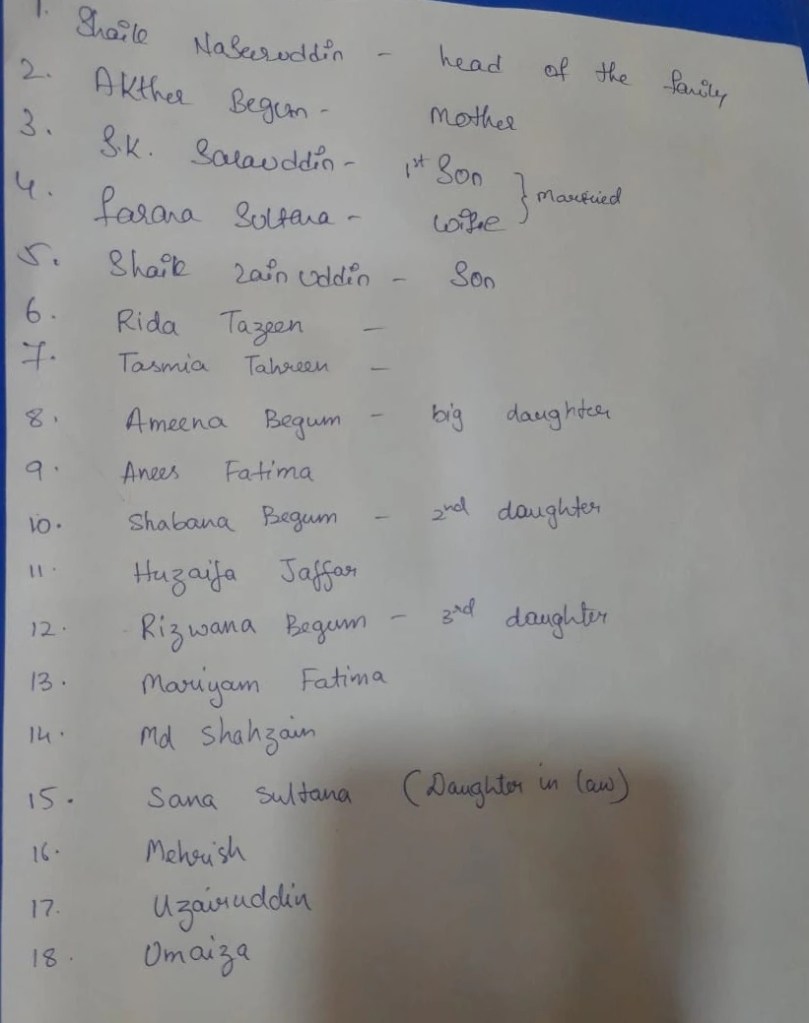 1. Shaik Naseeruddin - head of the family
2. Akther Begum - Mother
3. S.K. Salauddin - 1st Son } Married
4. farana Sultana - wife
5. Shaik Zain Uddin - Son
6. Rida Tazeen -
7. Tasmia Tahreen -
8. Ameena Begum - big daughter
9. Anees Fatima
10. Shabana Begum - 2nd daughter
11. Huzaifa Jaffar
12. Rizwana Begum - 3rd daughter
13. Mariyam Fatima
14. Md Shahzain
15. Sana Sultana (Daughter in law)
16. Mehrish
17. Uzairuddin
18. Omaiza